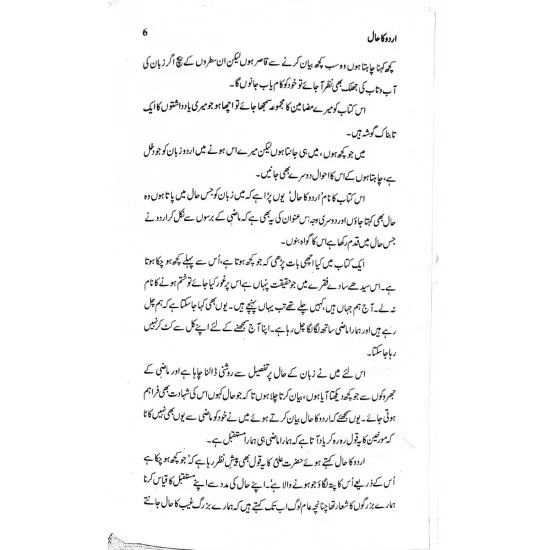 اردو کا حال 6
کچھ کہنا چاہتا ہوں وہ سب کچھ بیان کرنے سے قاصر ہوں لیکن ان سطروں کے بیچ اگر زبان کی
آب و تاب کی جھلک بھی نظر آ جائے تو خود کو کام یاب جانوں گا۔
اس کتاب کو میرے مضامین کا مجموعہ سمجھا جائے تو اچھا ہو جو میری یادداشتوں کا ایک
تابناک گوشہ ہیں۔
میں جو کچھ ہوں، میں ہی جانتا ہوں لیکن میرے اس ہونے میں اردو زبان کو جو دخل
ہے، چاہتا ہوں کے اس کا احوال دوسرے بھی جانیں۔
اس کتاب کا نام 'اردو کا حال' یوں پڑا ہے کہ میں زبان کو جس حال میں پاتا ہوں وہ
حال بھی کہتا جاؤں اور دوسری وجہ اس عنوان کی یہ بھی ہے کہ ماضی کے برسوں سے نکل کر اردو نے
جس حال میں قدم رکھا ہے اس کا گواہ بنوں۔
ایک کتاب میں کیا اچھی بات پڑھی کہ جو کچھ ہوتا ہے، اُس سے پہلے کچھ ہو چکا ہوتا
ہے۔ اس سیدھے سادے فقرے میں جو حقیقت پنہاں ہے اس پر غور کیا جائے تو ختم ہونے کا نام
نہ لے۔ آج ہم جہاں ہیں، کہیں چلے تھے تب یہاں پہنچے ہیں۔ یوں بھی کہا جا سکتا ہے کہ ہم چل
رہے ہیں اور ہمارا ماضی ساتھ لگا لگا چل رہا ہے۔ اپنا آج سمجھنے کے لئے اپنے کل سے کٹ کر نہیں
رہا جا سکتا۔
اس لئے میں نے زبان کے حال پر تفصیل سے روشنی ڈالنا چاہا ہے اور ماضی کے
جھروکوں سے جو کچھ دیکھتا آیا ہوں، بیان کرتا چلا ہوں تا کہ جو حال کہوں اس کی شہادت بھی فراہم
ہوتی جائے۔ یوں سمجھئے کہ اردو کا حال بیان کرتے ہوئے میں نے خود کو ماضی سے یوں بھی نہیں کاٹا
کہ مورخین کا یہ قول رہ رہ کر یاد آتا ہے کہ ہمارا ماضی ہی ہمارا مستقبل ہے۔
اردو کا حال کہتے ہوئے حضرت علیؓ کا یہ قول بھی پیشِ نظر رہا ہے کہ 'جو کچھ ہو چکا ہے
اُس کے ذریعے اُس کا پتہ لگاؤ جو ہونے والا ہے'۔ اپنے حال کی مدد سے اپنے مستقبل کا قیاس کرنا
ہمارے بزرگوں کا شعار تھا چنانچہ عام لوگ اب تک کہتے ہیں کہ ہمارے بزرگ غیب کا حال جانتے